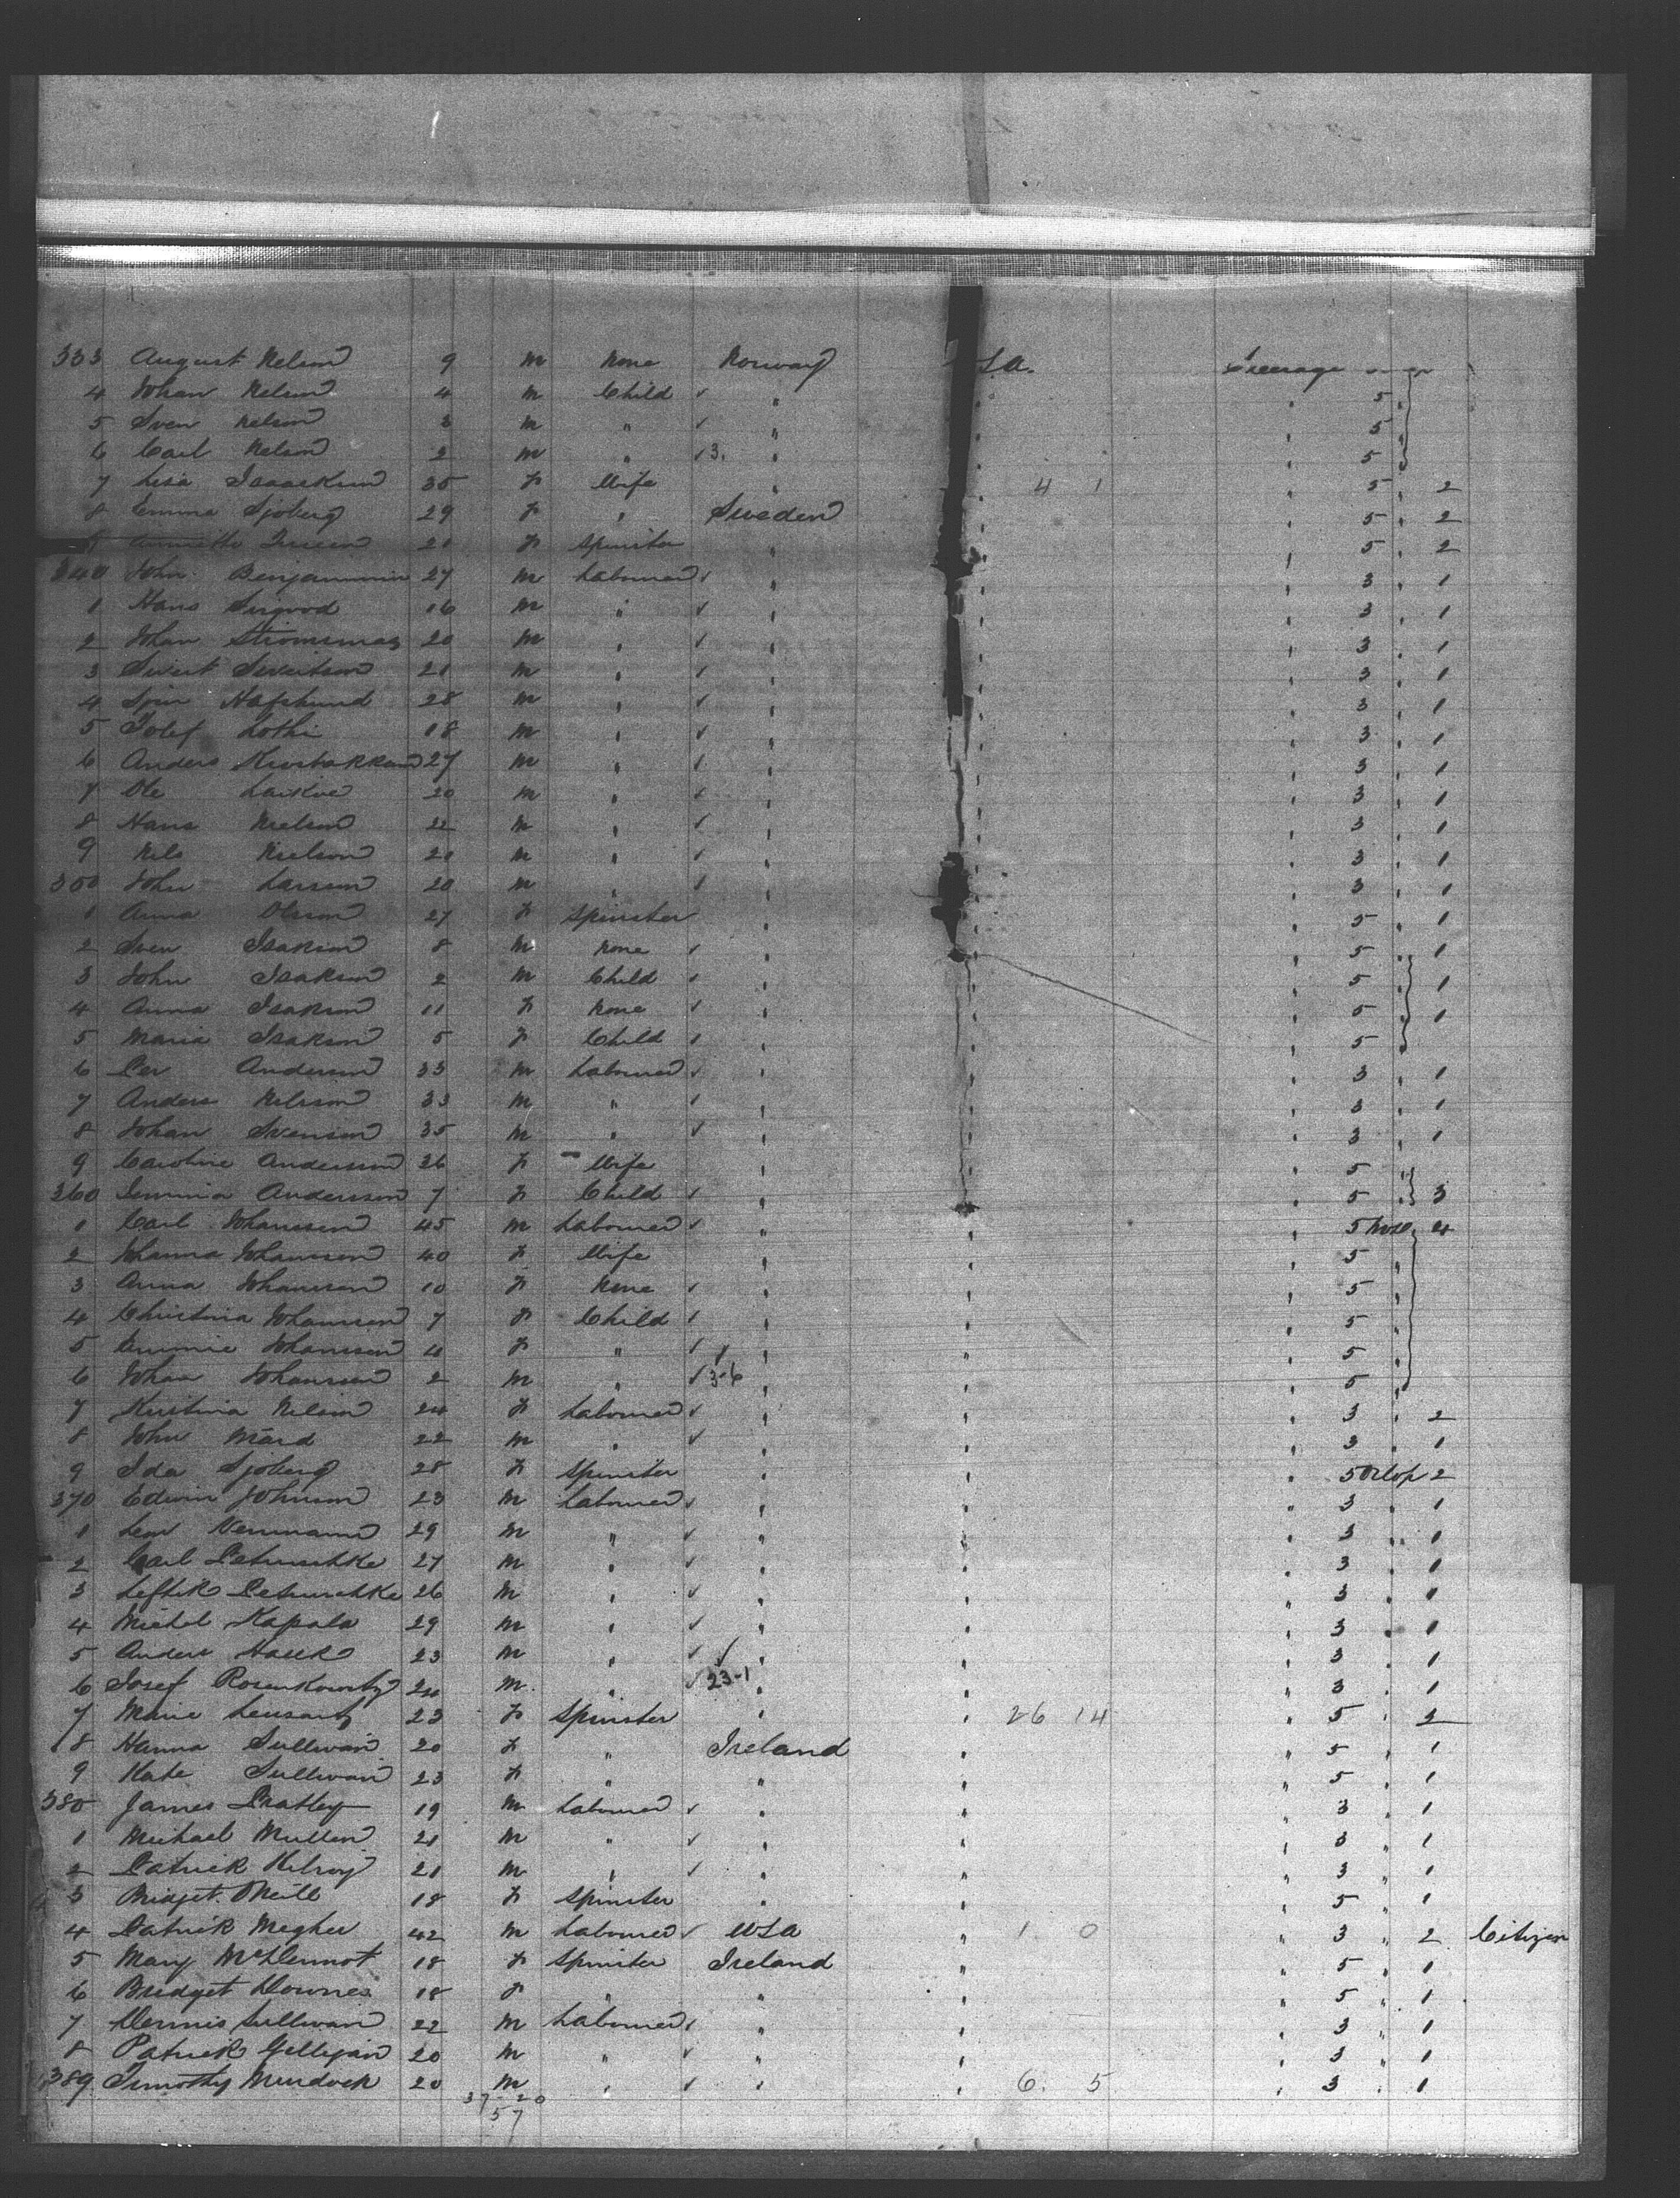 333 August Nelson 9 m None Norway S.A. Steerage
4 Johan Nelson 4 m Child ✓ " " 5
5 Sven Nelson 3 m " ✓ " " 5
6 Carl Nelson 2 m " ✓ 3. " " 5
7 Lisa Isaackson 35 f Wife " 4 1 " 5 " 2
8 Emma Sjoberg 29 f " Sweden " 5 " 2
21 f Spinster " " 5 " 2
340 John Benjaminin 27 m Labourer ✓ " " 3 " 1
1 Hans 16 m " ✓ " " 3 " 1
2 Johan 20 m " ✓ " " 3 " 1
3 Sivert Sivertson 21 m " ✓ " " 3 " 1
4 Hafslund 28 m " ✓ " " 3 " 1
5 Lothi 18 m " ✓ " " 3 " 1
6 Anders 27 m " ✓ " " 3 " 1
7 Ole 20 m " ✓ " " 3 " 1
8 Hans Nielson 22 m " ✓ " " 3 " 1
9 Nils Nielson 21 m " ✓ " " 3 " 1
350 John Larsson 20 m " ✓ " " 3 " 1
1 Anna Olsson 27 f Spinster " " 5 " 1
2 Sven Isakson 8 m None ✓ " " 5 " 1
3 John Isakson 2 m Child ✓ " " 5 " 1
4 Anna Isakson 11 f None ✓ " " 5 " 1
5 Maria Isakson 5 f Child ✓ " " 5
6 Per Anderson 33 m Labourer ✓ " " 3 " 1
7 Anders Nelson 33 m " ✓ " " 3 " 1
8 Johan Svenson 35 m " ✓ " " 3 " 1
9 Caroline Andersson 36 f Wife " " 5 "
360 Andersson 7 f Child ✓ " " 5 " 3
1 Carl Johansson 45 m Labourer ✓ " " 5 4
2 Johanna Johansson 40 f Wife " " 5 "
3 Anna Johansson 10 f None ✓ " " 5 "
4 Christina Johansson 7 f Child ✓ " " 5 "
5 Johansson 4 f " ✓ " " 5 "
6 Johan Johansson 2 m " ✓ 3-6 " " 5
7 Kristina Nelson 24 f Labourer ✓ " " 3 " 2
8 John Mard 22 m " ✓ " " 3 " 1
9 Ida Sjoberg 28 f Spinster " " 5 Orlop 2
370 Edwin Johnson 23 m Labourer ✓ " " 3 " 1
1 Neumann 29 m " ✓ " " 3 " 1
2 Carl Petruschke 27 m " ✓ " " 3 " 1
3 Petruschke 26 m " ✓ " " 3 " 1
4 Michel Kapala 29 m " ✓ " " 3 " 1
5 Anders 23 m " ✓ " " 3 " 1
6 Josef Rosenkowitz 24 m " ✓ 23-1 " " 3 " 1
7 Marie 23 f Spinster " 26 14 " 5 " 2
8 Hanna Sullivan 20 f " Ireland " 5 " 1
9 Kate Sullivan 23 f " " " 5 " 1
380 James Bratley 19 m Labourer ✓ " " 3 " 1
1 Michael Mullen 21 m " ✓ " " 3 " 1
2 Patrick Kilroy 21 m " ✓ " " 3 " 1
3 Bridget ONeill 18 f Spinster " " 5 " 1
4 Patrick Megher 42 m Labourer ✓ USA " 1 0 " 3 " 2 Citizen
5 Mary McDermot 18 f Spinster Ireland " " 5 " 1
6 Bridget Downes 18 f " " " 5 " 1
7 Dennis Sullivan 22 m Labourer ✓ " " 3 " 1
8 Patrick Gilligan 20 m " ✓ " " 3 " 1
389 Timothy Murdock 20 m " ✓ " 6. 5 " 3 " 1
37-20
57